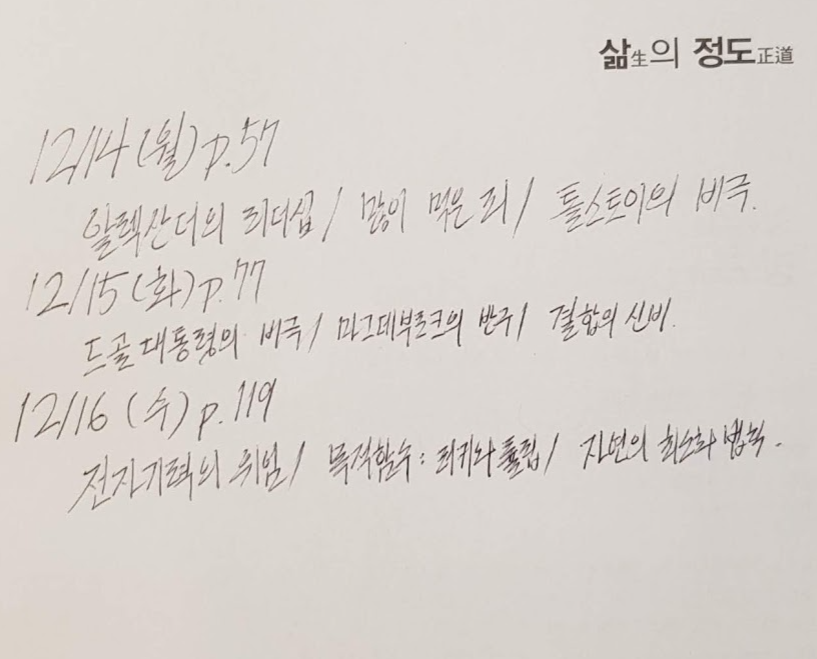 삶生의 정도正道
12/14 (월) p.57
알렉산더의 리더십 / 많이 먹은 죄 / 톨스토이의 비극.
12/15 (화) p.77
드골 대통령의 비극 / 마그데부르크의 반구 / 결합의 신비.
12/16 (수) p.119
전자기력의 위엄 / 목적함수 : 리키와 튤립 / 자연의 최소화 법칙.